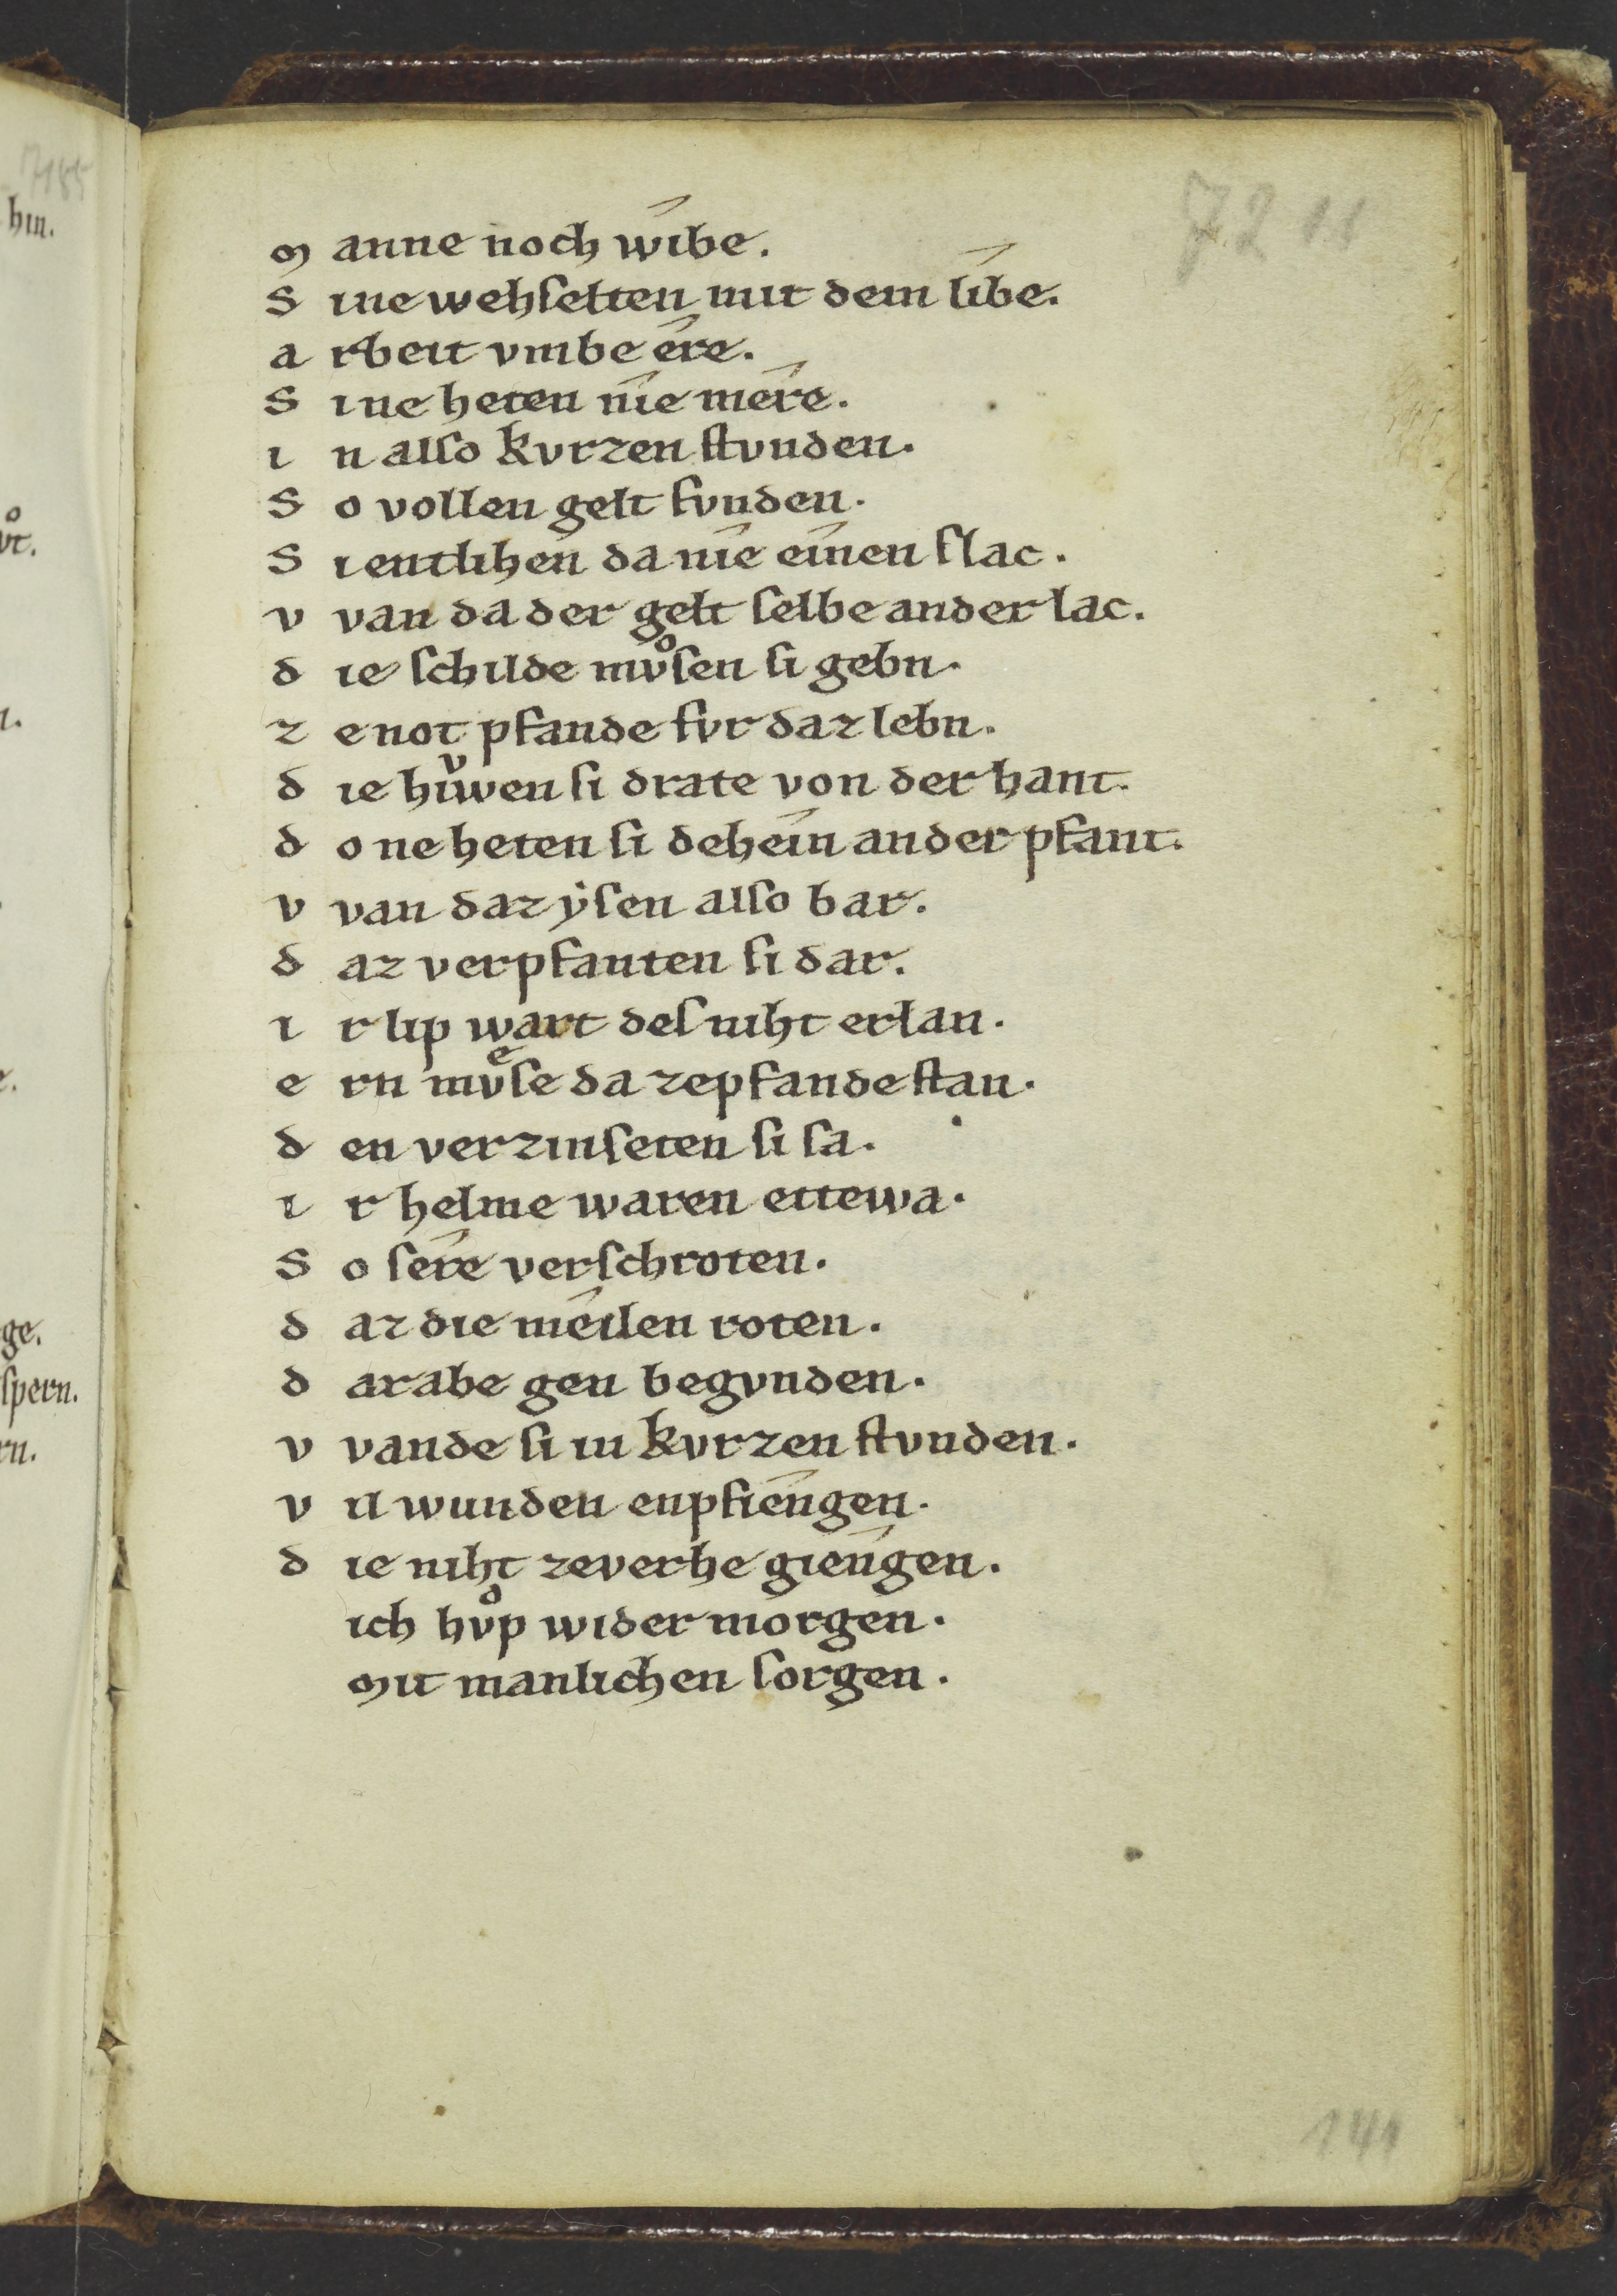 72 11
m anne noch wîbe.
S ine wehſelten mit dem lîbe.
a rbeit vmbe êre.
S ine heten nîe mêre.
i n alſo kvrzen ſtvnden.
S o vollen gelt fvnden.
S i entlihen da nîe eînen ſlac.
v van da der gelt ſelbe ander lac.
d ie ſchilde mvͦſen ſi gebn.
z e not pfande fvr daz lebn.
d ie hiwͮen ſi drate von der hant.
d o ne heten ſi deheîn ander pfant.
v van daz ẏſen alſo bar.
d az verpfanten ſi dar.
i r lip wart deſ niht erlan.
e rn mvͤſe da zepfande ſtan.
d en verzinſeten ſi ſa.
i r helme waren ettewa.
S o ſêre verſchroten.
d az die meîlen roten.
d arabe gen begvnden.
v vande ſi in kvrzen ſtvnden.
v il wunden enpfîengen.
d ie niht zeverhe gîengen.
ich hvͦp wider morgen.
mit manlichen ſorgen.
141
7185
hin.
vͦt.
n.
e.
ge.
ſpern.
rn.